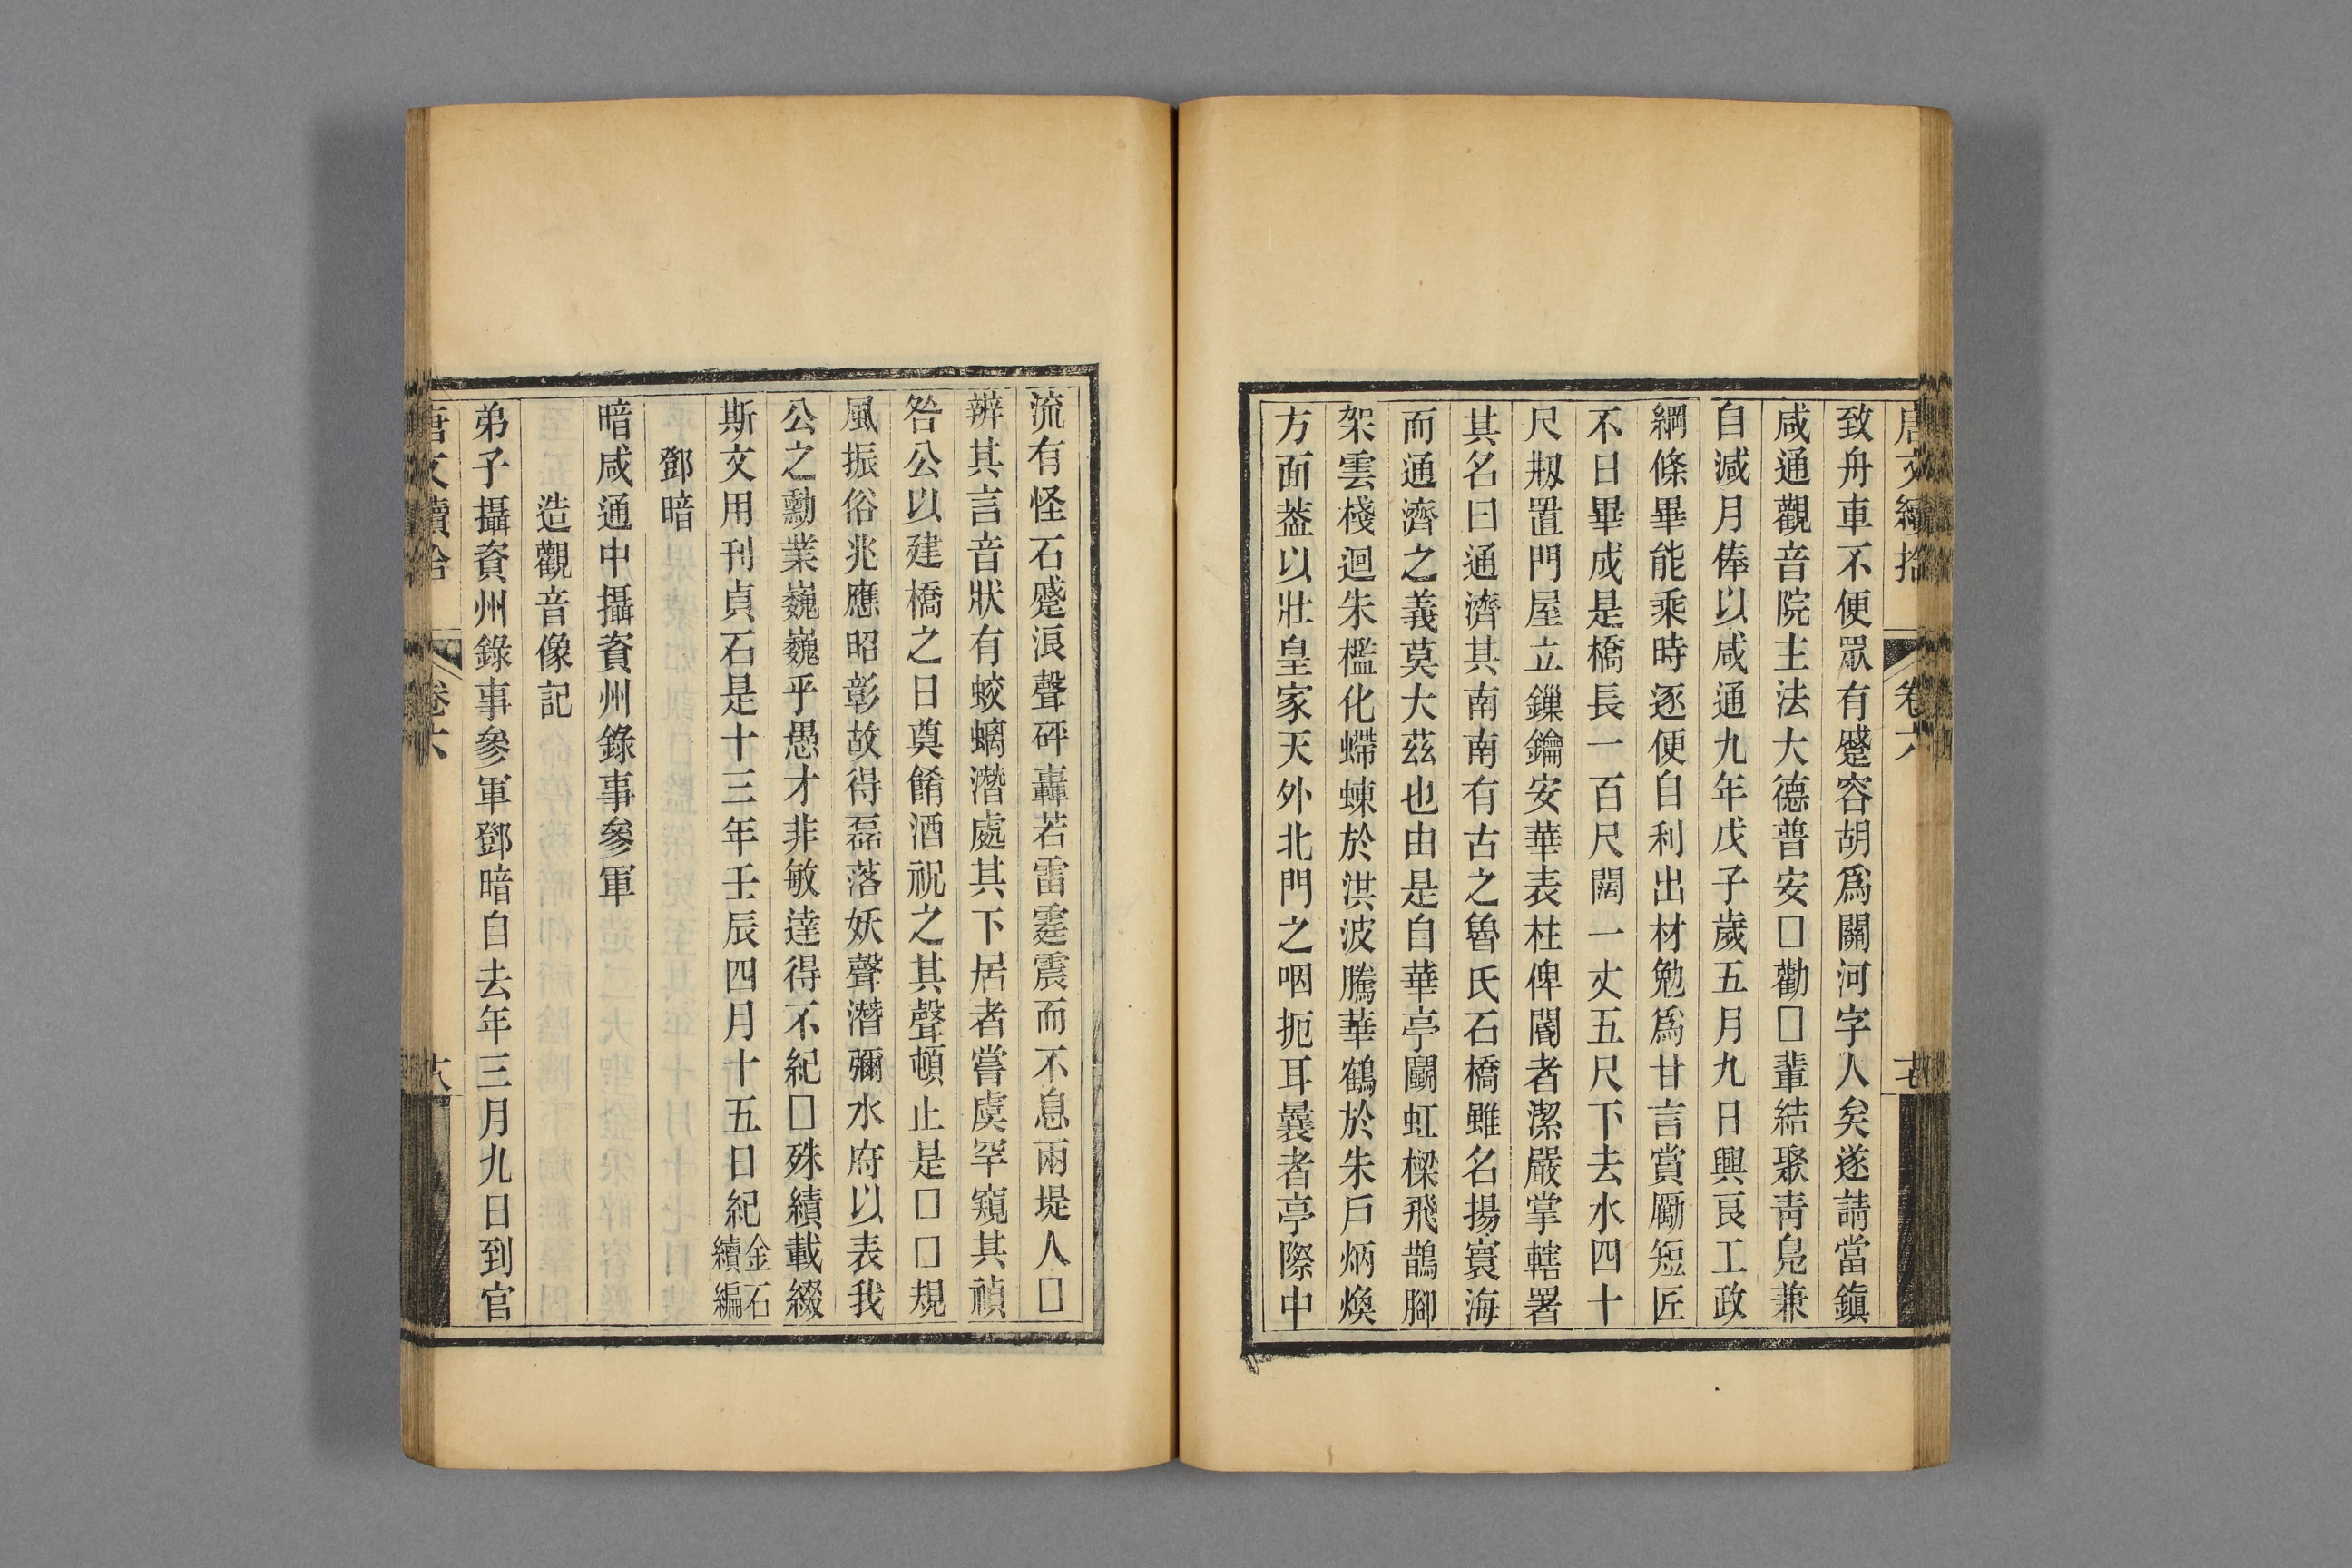 唐文續拾 卷六 十七
致舟車不便眾有蹙容胡爲關河字人矣遂請當鎮
咸通觀音院主法大德普安□勸□輩結聚靑鳧兼
自減月俸以咸通九年戊子歲五月九日興良工政
綱條畢能乘時逐便自利出材勉爲甘言賞勵短匠
不日畢成是橋長一百尺闊一丈五尺下去水四十
尺剙置門屋立鏁鑰安華表柱俾閽者潔嚴掌轄署
其名曰通濟其南南有古之魯氏石橋雖名揚寰海
而通濟之義莫大茲也由是自華亭闢虹樑飛鵲腳
架雲棧迴朱檻化螮蝀於洪波騰華鶴於朱戶炳煥
方面葢以壯皇家天外北門之咽扼耳曩者亭際中
流有怪石蹙浪聲砰轟若雷霆震而不息兩堤人□
辨其言音狀有蛟螭潛處其下居者嘗虞罕窺其禎
咎公以建橋之日奠餚酒祝之其聲頓止是□□規
風振俗兆應昭彰故得磊落妖聲潛彌水府以表我
公之勳業巍巍乎愚才非敏達得不紀□殊績載綴
斯文用刊貞石是十三年壬辰四月十五日紀 金石續編
鄧暗
暗咸通中攝資州錄事參軍
造觀音像記
弟子攝資州錄事參軍鄧暗自去年三月九日到官
唐文續拾 卷六 十八